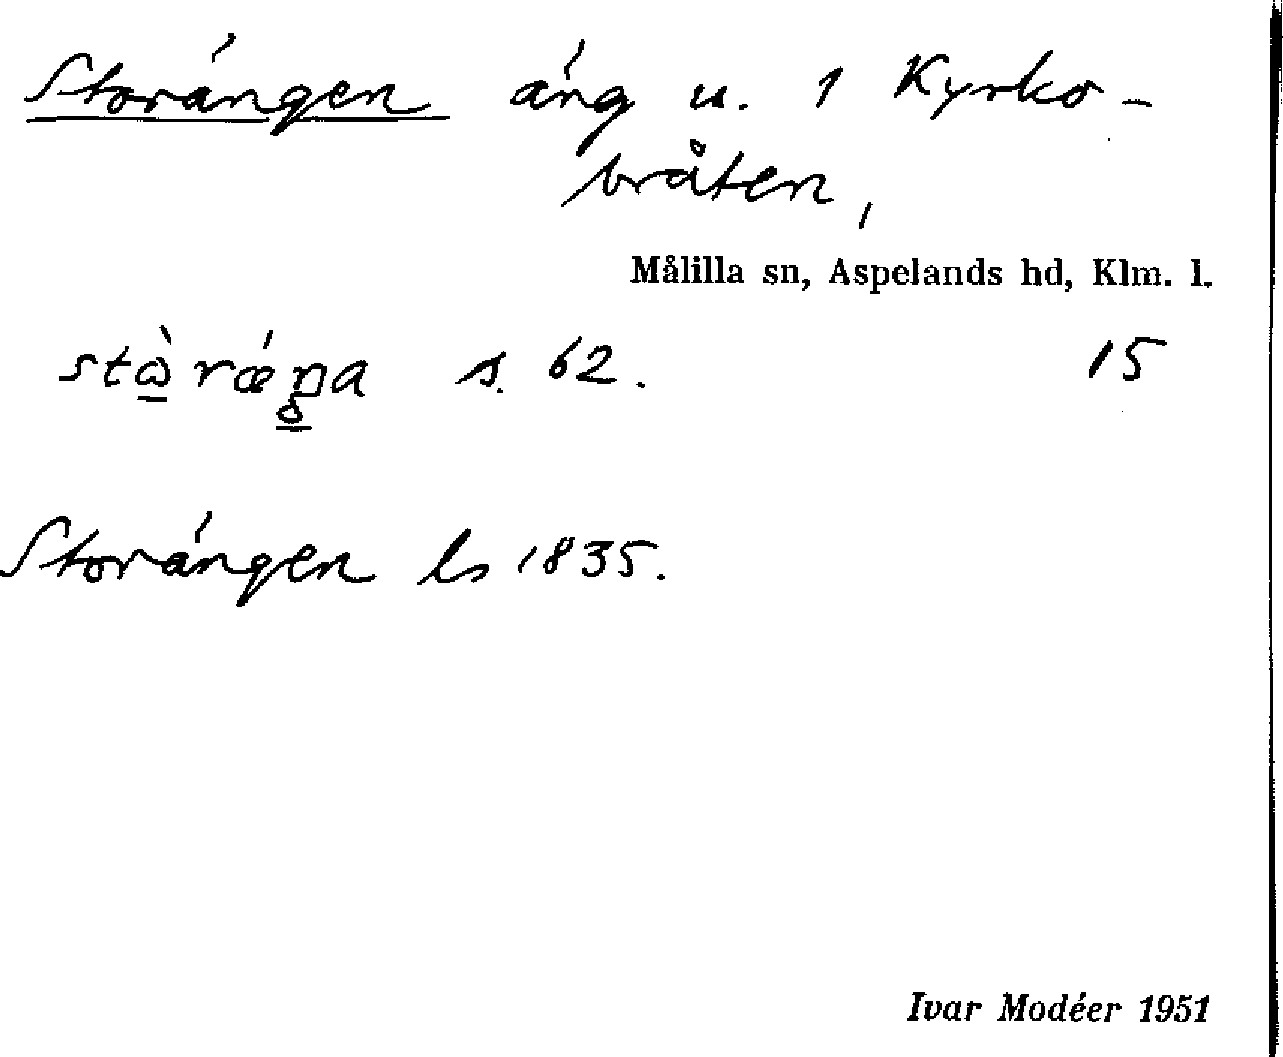 Storängen äng u. 1 Kyrko-
bråten,
Målilla sn, Aspelands hd, Klm. l.
s. 62. 15
Storängen ls 1835.
Ivar Modéer 1951